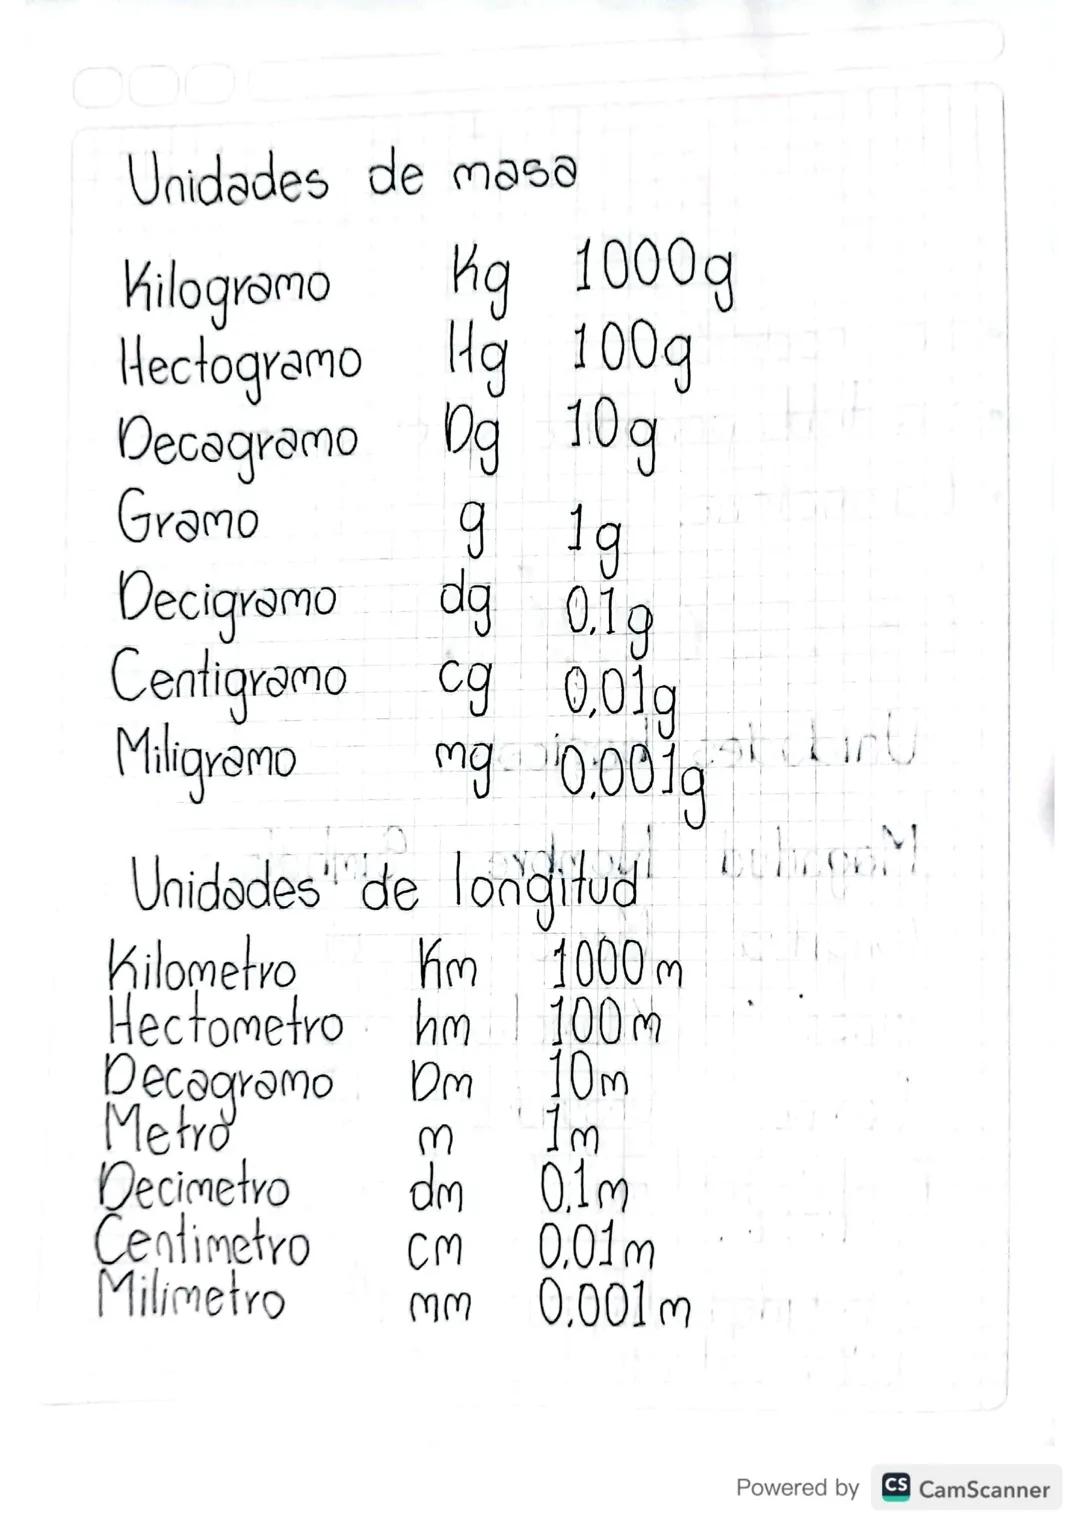 Unidades de masa
Kilogramo Kg 1000g
Hectogramo Hg 100g
Decagramo Dg 10g
Gramo g 1g
Decigramo dg 0.1g
Centigramo cg 0,01g
Miligramo mg 0.001g
Unidades de longitud
Kilometro Km 1000m
Hectometro hm 100m
Decagramo Dm 10m
Metro m 1m
Decimetro dm 0.1m
Centimetro cm 0.01m
Milimetro mm 0.001m
Powered by CS CamScanner